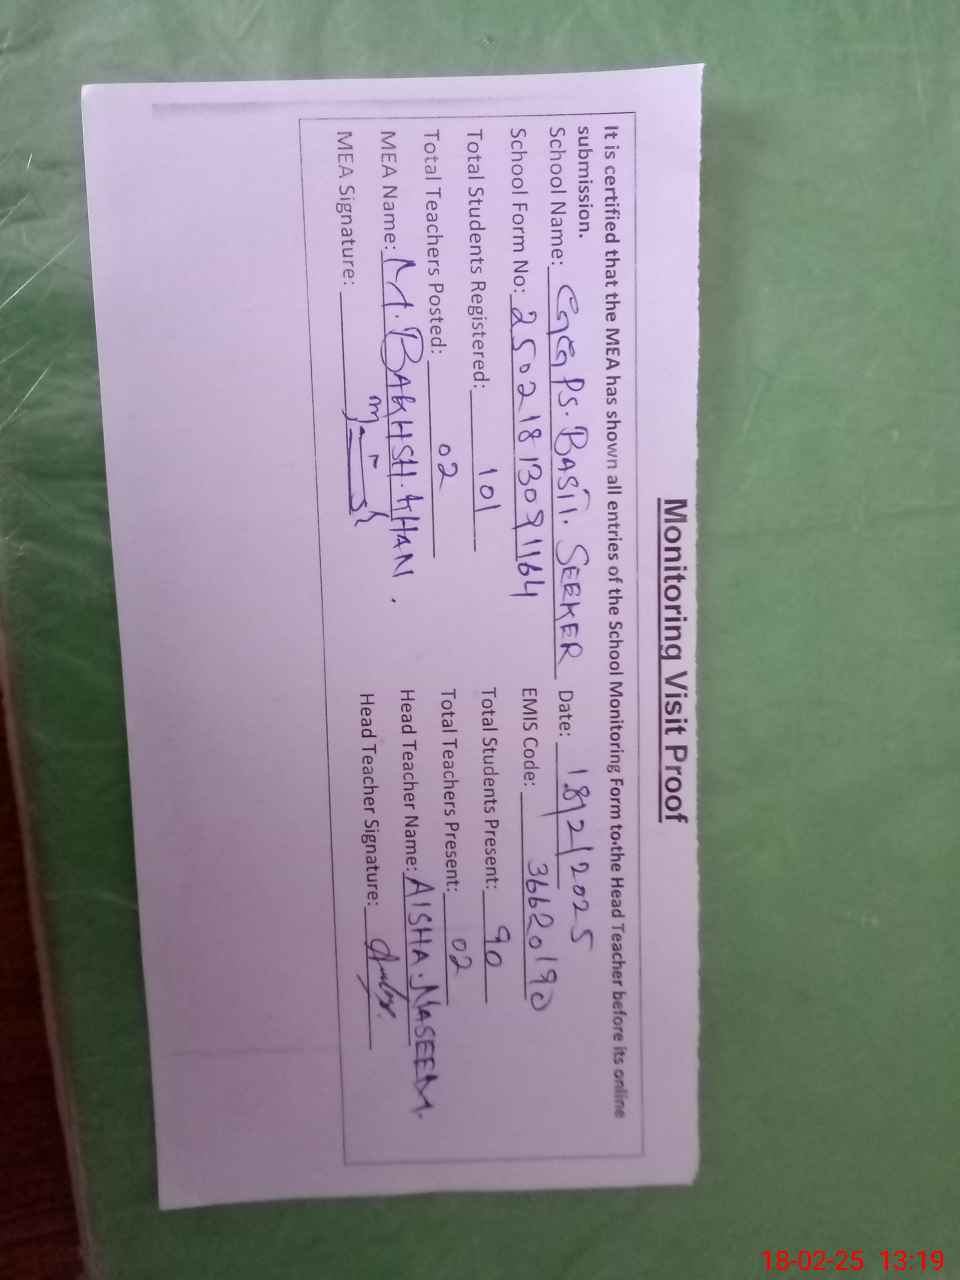 Monitoring Visit Proof
It is certified that the MEA has shown all entries of the School Monitoring Form to the Head Teacher before its online
submission.
School Name: GGPS. BASTI. SEEKER Date: 18/2/2025
School Form No: 25021813091164 EMIS Code: 36620190
Total Students Registered: 101 Total Students Present: 90
Total Teachers Posted: 02 Total Teachers Present: 02
MEA Name: M. BAKHSH. KHAN. Head Teacher Name: AISHA. NASEEM.
MEA Signature: Head Teacher Signature:
18-02-25 13:19